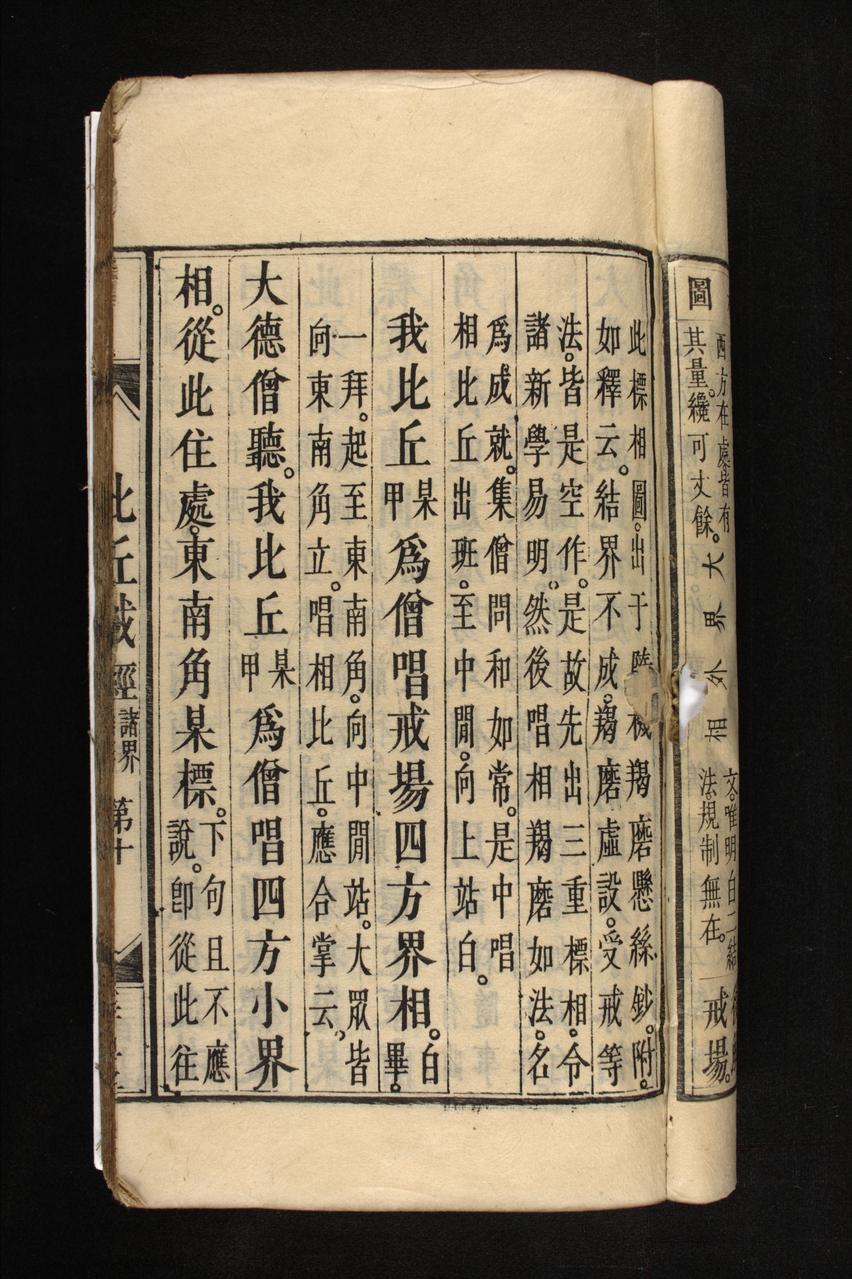 西方在處皆有
圖 其量纔可丈餘。
大界外相
文。唯明白二結
法。規制無在。
戒場。
此標相圖。出于機羯磨懸絲鈔。附。
如釋云。結界不成。羯磨虛設。受戒等
法。皆是空作。是故先出三重標相。令
諸新學易明。然後唱相羯磨如法。名
爲成就。集僧問和如常。是中唱
相比丘出班。至中閒。向上站白。
我比丘某甲爲僧唱戒場四方界相。白畢。
一拜。起至東南角。向中閒站。大眾皆
向東南角立。唱相比丘。應合掌云、
大德僧聽。我比丘某甲爲僧唱四方小界
相。從此住處。東南角某標。下句且不應
說。卽從此往
比丘戒經 諸界 第十